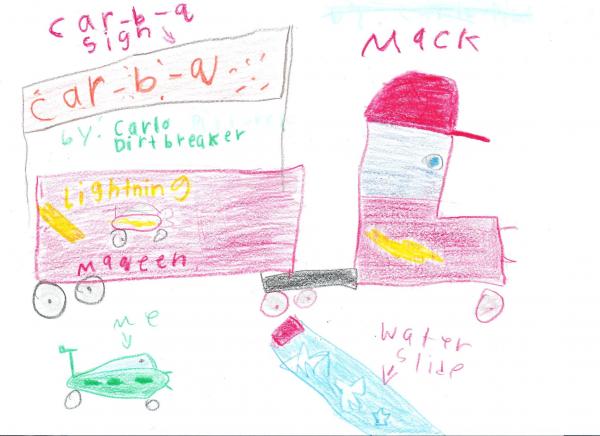 car-b-q
sign
Mack
car-b-q
by: Carlo
Dirtbreaker
Lightning
Mqeen
me
water
slide